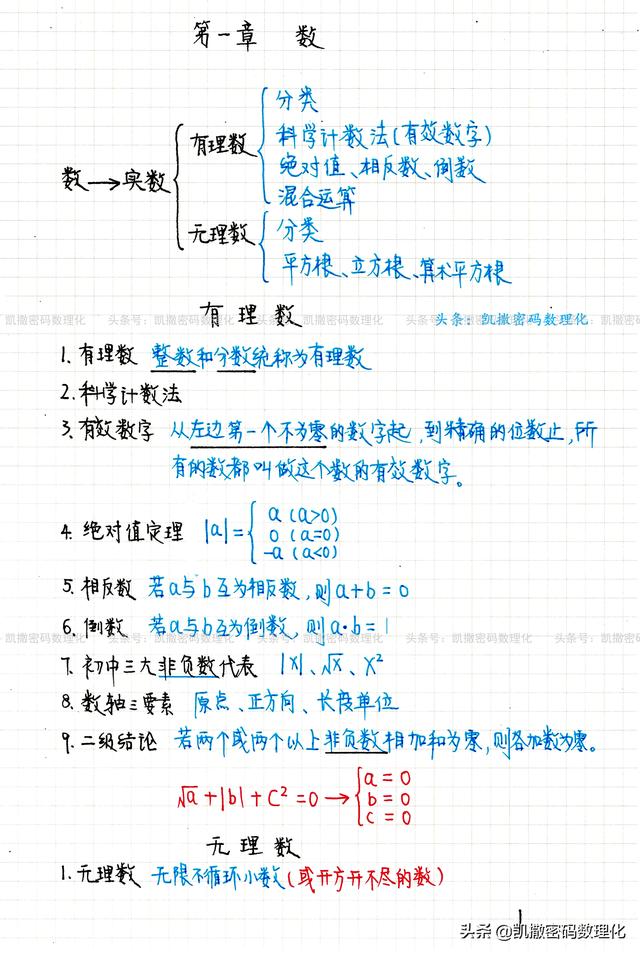 第一章 数
分类
科学计数法(有效数字)
有理数
绝对值、相反数、倒数
混合运算
数→实数
分类
无理数
平方根、立方根、算术平方根
有理数
头条: 凯撒密码数理化
头条号: 凯撒密码数理化
1. 有理数 整数和分数统称为有理数
2. 科学计数法
3. 有效数字 从左边第一个不为零的数字起,到精确的位数止,所
有的数都叫做这个数的有效数字。
4. 绝对值定理 |a|={ a (a>0)
0 (a=0)
-a (a<0)
5. 相反数 若a与b互为相反数,则a+b=0
6. 倒数 若a与b互为倒数,则a·b=1
头条号: 凯撒密码数理化
7. 初中三大非负数代表 |x|、√x、x²
8. 数轴三要素 原点、正方向、长度单位
9. 二级结论 若两个或两个以上非负数相加和为零,则各加数为零。
√a+|b|+c²=0→{ a=0
b=0
c=0
无理数
1. 无理数 无限不循环小数(或开方开不尽的数)
1
头条 @凯撒密码数理化